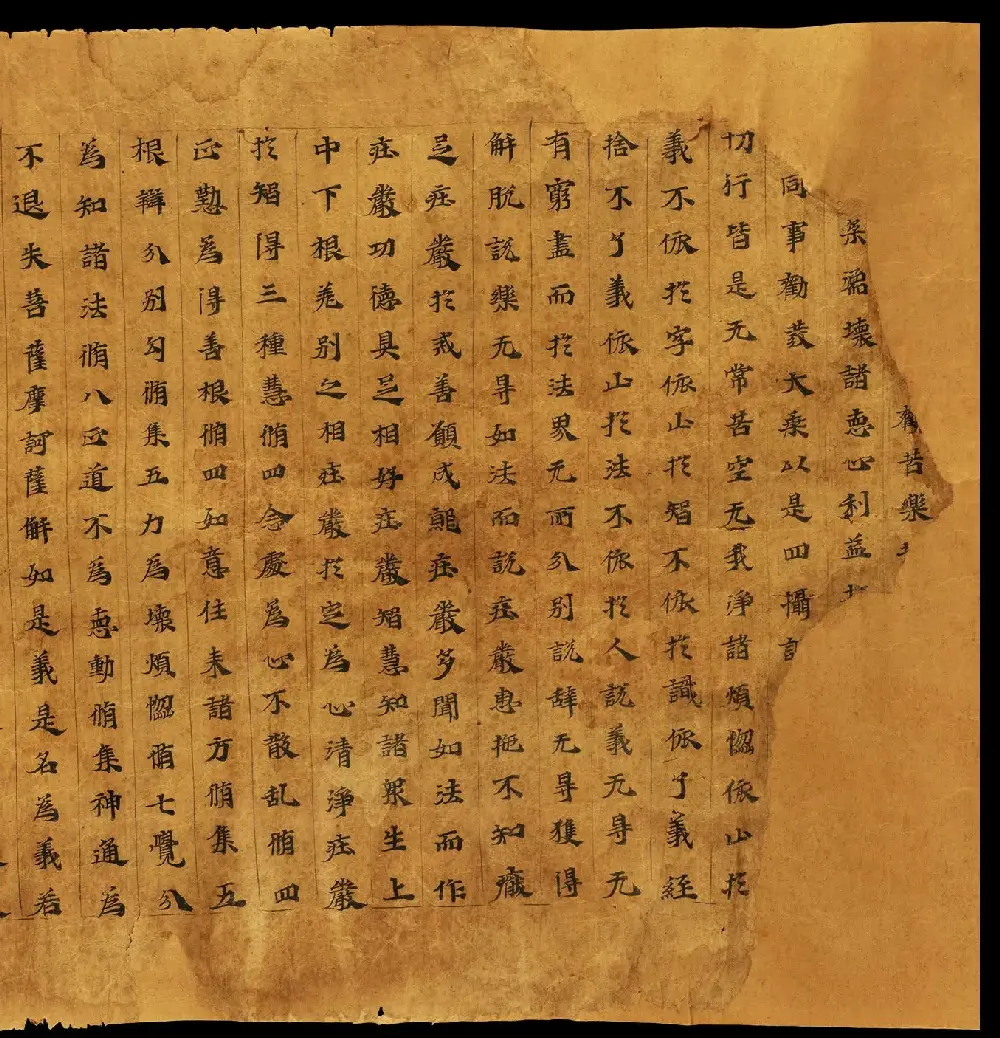 有苦樂
柔濡壞諸恚心利益
同事勸發大乘以是四攝
切行皆是无常苦空无我淨諸煩惱依止於
義不依於字依止於智不依於識依了義經
捨不了義依止於法不依於人說義无㝵无
有窮盡而於法界无所分別說辞无㝵獲得
解脫說樂无㝵如法而說莊嚴惠施不知
足莊嚴於戒善願成就莊嚴多聞如法而作
莊嚴功德具足相好莊嚴智慧知諸衆生上
中下根差別之相莊嚴於定為心清淨莊嚴
於智得三種慧脩四念處為心不散乱脩四
正懃為得善根脩四如意住未諸方脩集五
根辯分別句脩集五力為壞煩惱脩七覺分
為知諸法脩八正道不為恚動脩集神通為
不退失菩薩摩訶薩解如是義是名為義若